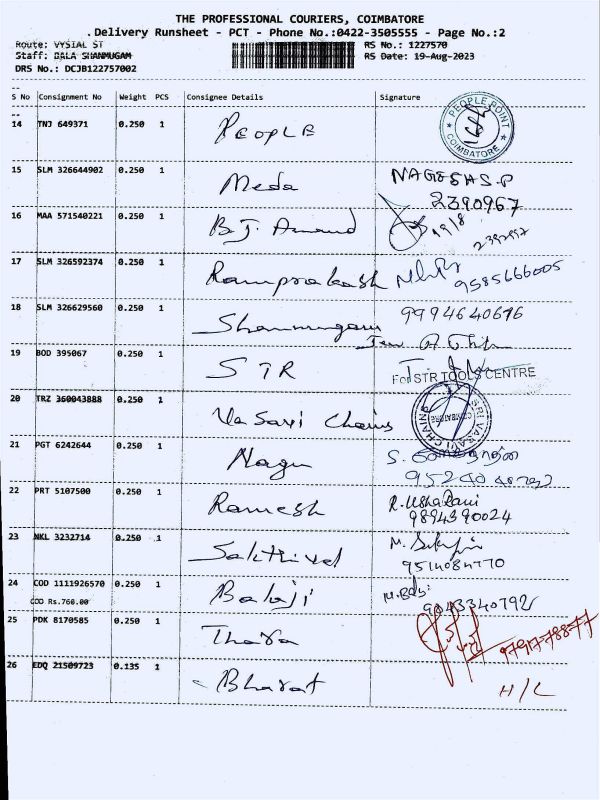 THE PROFESSIONAL COURIERS, COIMBATORE
Delivery Runsheet - PCT - Phone No.:0422-3505555 - Page No.:2
Route: VYSIAL ST RS No.: 1227570
Staff: BALA SHANMUGAM RS Date: 19-Aug-2023
DRS No.: DCJB122757002
S No Consignment No Weight PCS Consignee Details Signature
14 TNJ 649371 0.250 1 PEOPLE PEOPLE POINT COIMBATORE
15 SLM 326644902 0.250 1 Meda NAGESH S.P
2390967
16 MAA 571540221 0.250 1 B.J. Anand 19/8
17 SLM 326592374 0.250 1 Ramprakash 9585666005
18 SLM 326629560 0.250 1 Shanmugam 9994640676
19 BOD 395067 0.250 1 STR For STR TOOLS CENTRE
20 TRZ 360043888 0.250 1 Va Savi Chains SRI VASAVI CHAINS COIMBATORE
21 PGT 6242644 0.250 1 Nagu S.
22 PRT 5107500 0.250 1 Ramesh R. Usha Rani
9894390024
23 NKL 3232714 0.250 1 Sakthivel M.
9514084770
24 COD 1111926570 0.250 1 Balaji
COD Rs.760.00 9043340792
25 PDK 8170585 0.250 1 Thara 97917-788-77
26 EDQ 21509723 0.135 1 Bharat H/L